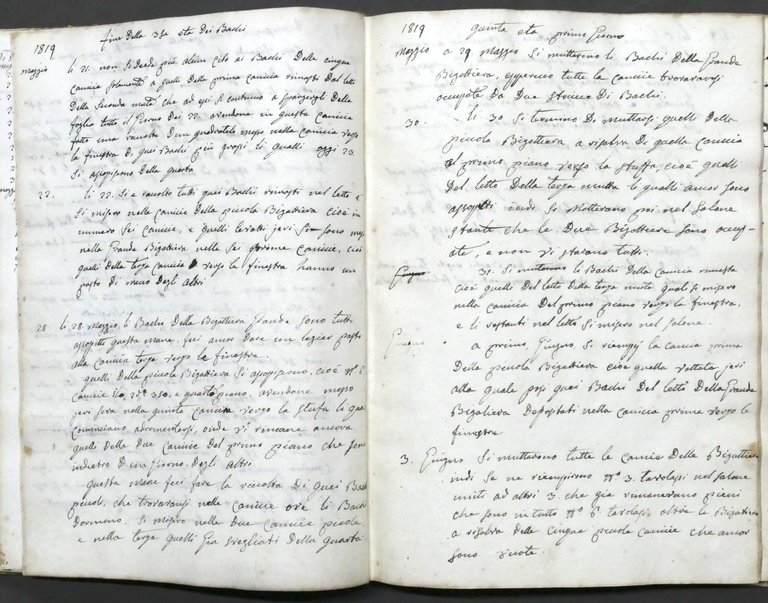 1819 fine della 3za età dei Bachi
Maggio li 21. non si diede più alcun cibo ai Bachi delle cinque
canicie solamente a quelli della prima canicia rimasti nel letto
della seconda muta che ad essi si continuò a spargergli della
foglia tutto il giorno dei 22. avendone in questa canicia
fatto una raccolta d'un quadratello messo nella canicia verso
la finestra di quei Bachi più grossi li qualli oggi 23.
si assopiscono della quarta
22. li 22. si è raccolto tutti quei Bachi rimasti nel letto e
si misero nelle canicie della piccola Bigattiera cioè in
numero sei canicie, e quelli levatti jeri sono messi
nella Grande Bigattiera nelle sei prime canicie, cioè
quelli della terza canicia verso la finestra hanno un
pasto di meno degli altri
28 li 28 maggio li Bachi della Bigattiera grande sono tutti
assopitti questa mane, fui ancor dare un legier pasto
alla canicia terza verso la finestra.
quelli della picola Bigattiera si assopiscono, cioè nº 6
canicie 2do, e quarto piano, avendone messo
jeri sera nella quinta canicia verso la stufa li quali
cominciano adormentarsi, onde vi rimane ancora
quelli delle due canicie del primo piano che sono
indietro d'un giorno degli altri
questa mane feci fare la racolta di quei Bachi
picoli, che trovavansi nelle canicie ove li Bachi
dormano, si misero nelle due canicie picole
e nella terza quelli già svegliati della quarta
1819 quinta età primo Giorno
Maggio a 29 Maggio si mutterono li Bachi della Grande
Bigattiera, eppercuo tutte le canicie trovaransi
occupate da due stuoie di Bachi.
30. li 30 si terminò di muttarsi quelli della
piccola Bigattiera a riserva di quella canicia
al primo piano verso la stuffa, cioè quelli
del letto della terza mutta li qualli ancor sono
assopitti indi si metterano poi nel salone
stante che le due Bigattiere sono occup-
ate, e non vi starano tutti.
Giugno 31. si mutterono li Bachi della canicia rimasta
cioè quelli del letto della terza muta quali si misero
nella canicia del primo piano verso la finestra,
e li restanti nel letto si misero nel salone.
Giugno a primo, Giugno si riempì la canicia prima
della piccola Bigattiera cioè quella voltata jeri
alla quale posi quei Bachi del letto della Grande
Bigattiera depositati nella canicia prima verso le
finestre
3. Giugno si muttarono tutte le canicie della Bigattiera
indi se ne riempirono nº 3. tavolassi nel salone
uniti ad altri 3 che già rimanevano pieni
che sono in tutto nº 6 tavolassi oltre la Bigattiera
a riserva delle cinque piccole canicie che ancor
sono vuote.